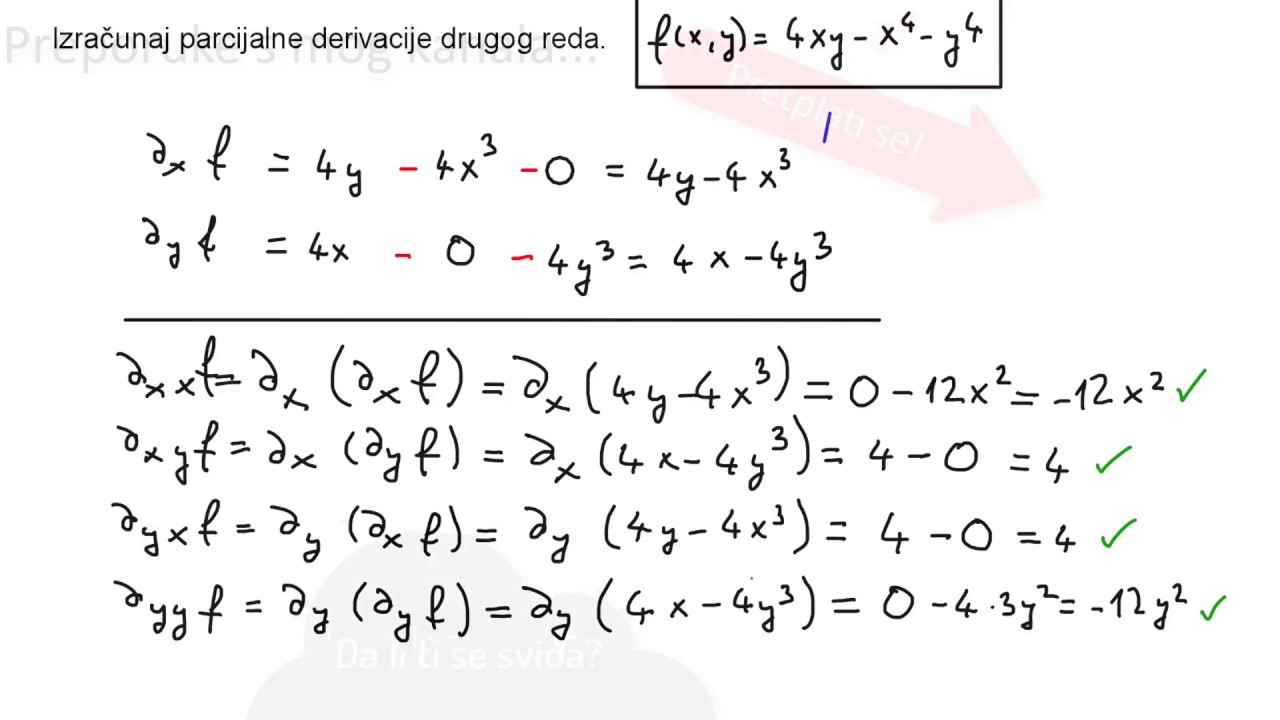 Preporuke s mog kanala...
Izračunaj parcijalne derivacije drugog reda.
f(x,y) = 4xy - x⁴ - y⁴
Pretplati se!
∂ₓ f = 4y - 4x³ - 0 = 4y - 4x³
∂_y f = 4x - 0 - 4y³ = 4x - 4y³
∂ₓₓf = ∂ₓ (∂ₓ f) = ∂ₓ (4y - 4x³) = 0 - 12x² = -12x² ✓
∂_xy f = ∂ₓ (∂_y f) = ∂ₓ (4x - 4y³) = 4 - 0 = 4 ✓
∂_yx f = ∂_y (∂ₓ f) = ∂_y (4y - 4x³) = 4 - 0 = 4 ✓
∂_yy f = ∂_y (∂_y f) = ∂_y (4x - 4y³) = 0 - 4·3y² = -12y² ✓
Da li ti se sviđa?